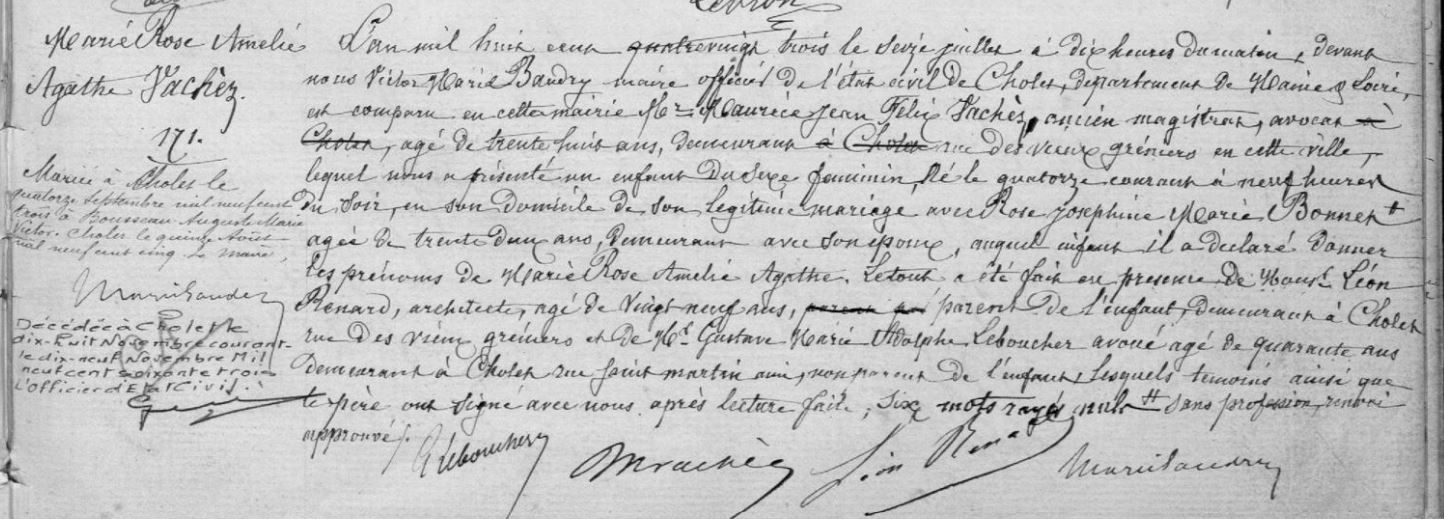 Lebron
Marie Rose Amelie
Agathe Vachez.
171.
Mariée à Cholet le
quatorze Septembre mil neuf cent
trois à Bousseau Auguste Marie
Victor. Cholet le quinze Août
mil neuf cent cinq. Le Maire,
Marie Baudry
Décédée à Cholet le
dix-huit Novembre courant
le dix-neuf Novembre Mil
neuf cent soixante trois
L'Officier d'Etat Civil.
L'an mil huit cent quatrevingt trois le seize juillet à dix heures du matin, devant
nous Victor Marie Baudry maire officier de l'état civil de Cholet, département de Maine & Loire,
est comparu en cette mairie Mr Maurice Jean Félix Vachèz, ancien magistrat, avocat à
Cholet, agé de trente huit ans, demeurant à Cholet rue des vieux gréniers en cette ville,
lequel nous a présenté un enfant du sexe feminin, Né le quatorze courant à neuf heures
du soir, en son domicile de son legitime mariage avec Rose Joséphine Marie Bonnet #
agée de trente deux ans, demeurant avec son époux, auquel enfant il a declaré donner
les prénoms de Marie Rose Amelie Agathe. Le tout a été fait en presence de Monsr Léon
Renard, architecte, agé de vingt neuf ans, parent de l'enfant, demeurant à Cholet
rue des vieux gréniers et de Mr Gustave Marie Adolphe Leboucher avoué agé de quarante ans
demeurant à Cholet rue saint martin ami, non parent de l'enfant, lesquels temoins ainsi que
le père ont signé avec nous après lecture faite, six mots rayés nuls # sans profession, renvoi
approuvé.
G Leboucher
M Vachèz
Léon Renard
Marie Baudry